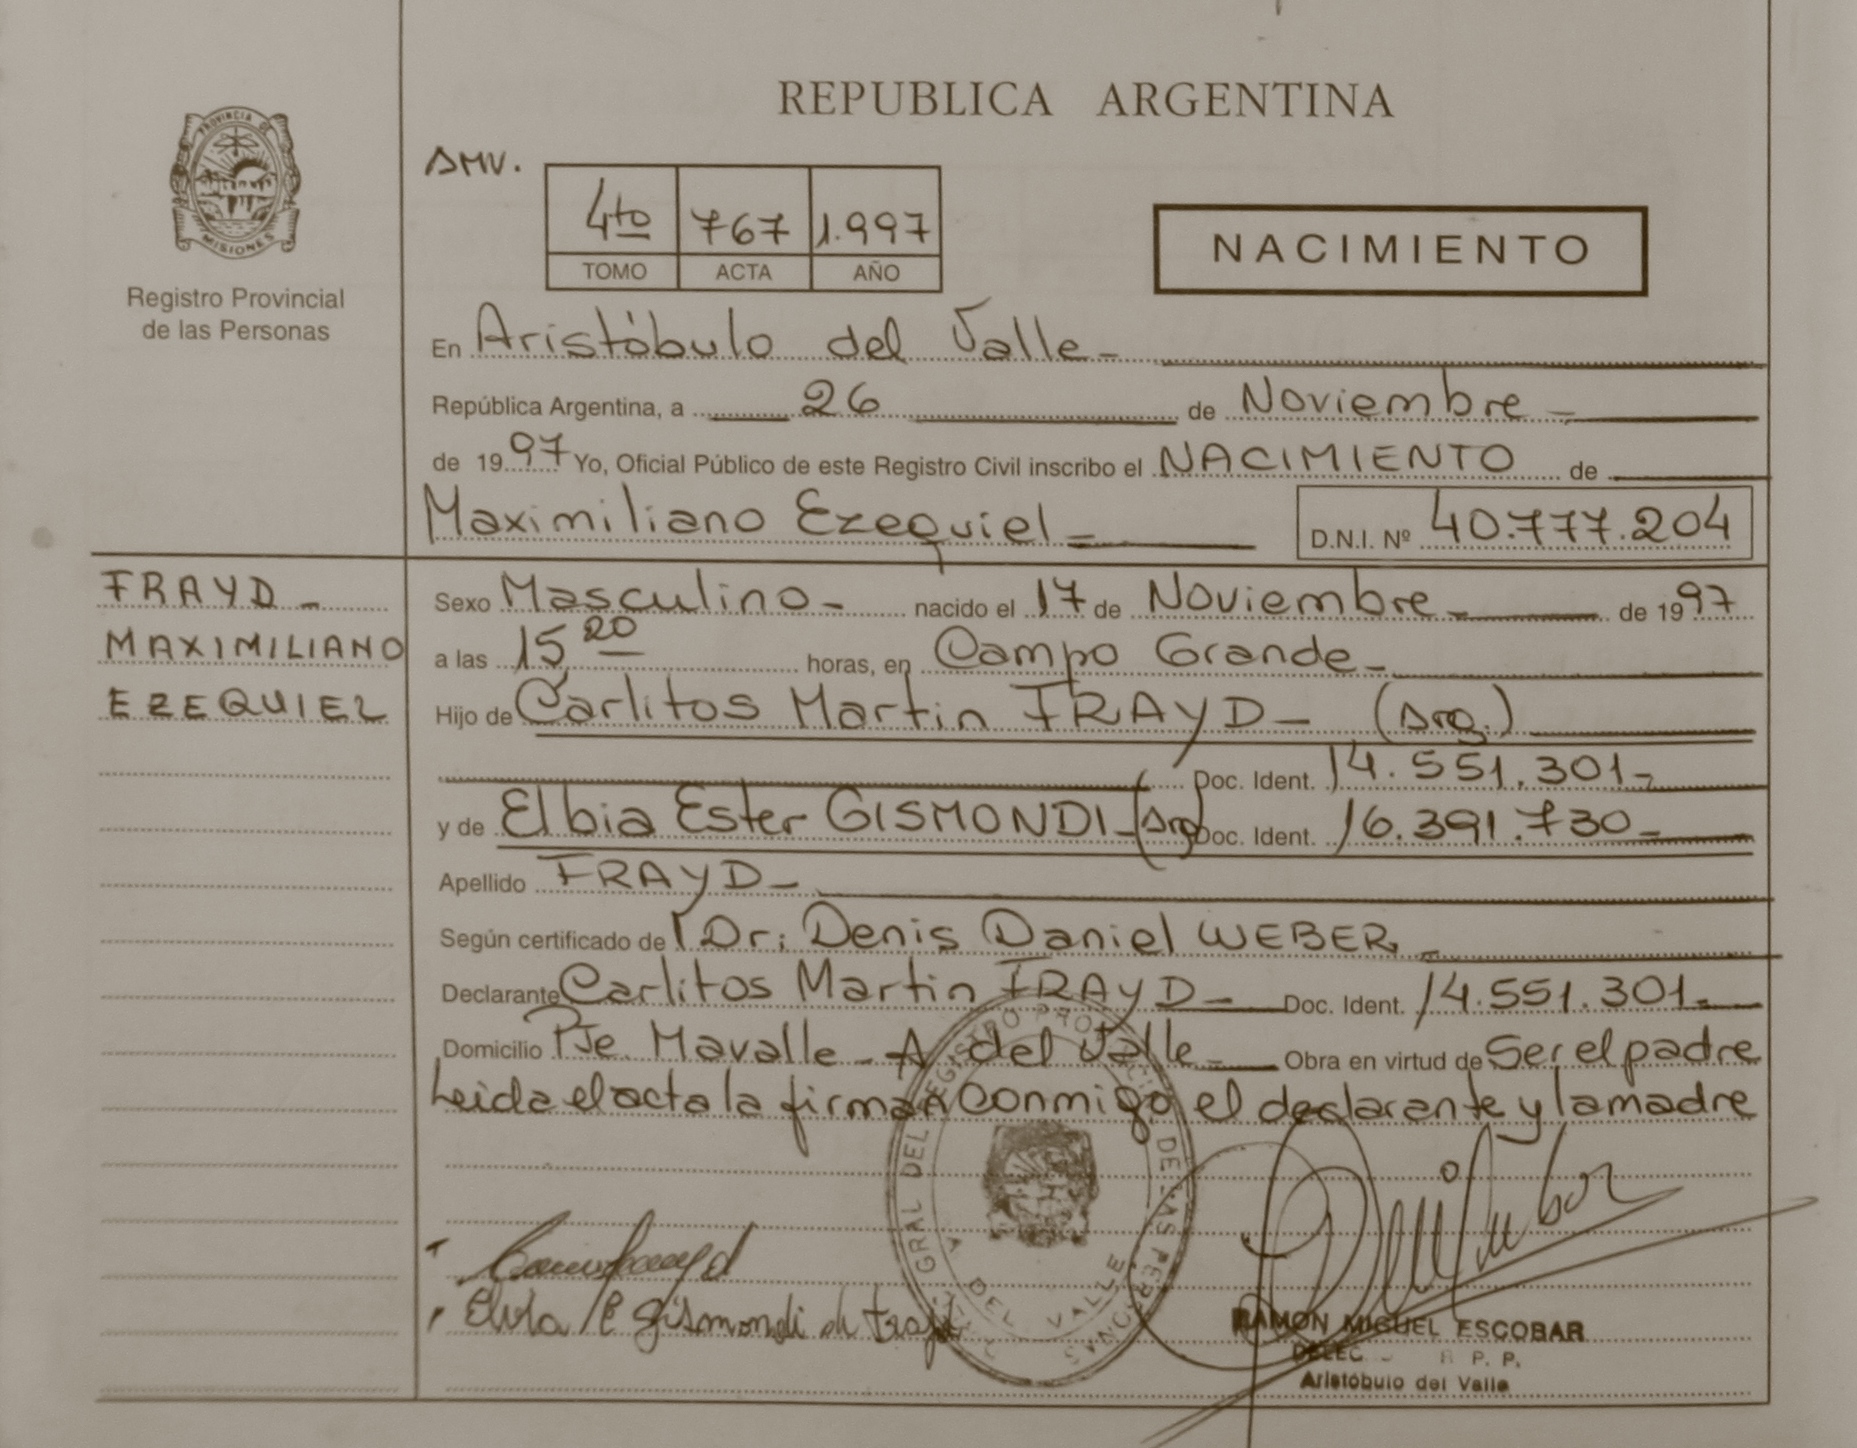 REPUBLICA ARGENTINA
PROVINCIA DE
MISIONES
Registro Provincial
de las Personas
AMV.
4to 767 1.997
TOMO ACTA AÑO
NACIMIENTO
En Aristóbulo del Valle -
República Argentina, a 26 de Noviembre -
de 1997 Yo, Oficial Público de este Registro Civil inscribo el NACIMIENTO de
Maximiliano Ezequiel - D.N.I. Nº 40.777.204
FRAYD -
MAXIMILIANO
EZEQUIEL
Sexo Masculino - nacido el 17 de Noviembre - de 1997
a las 15,20 horas, en Campo Grande -
Hijo de Carlitos Martin FRAYD - (Arg.)
Doc. Ident. 14.551.301-
y de Elbia Ester GISMONDI - (Arg) Doc. Ident. 16.391.730-
Apellido FRAYD -
Según certificado de Dr: Denis Daniel WEBER -
Declarante Carlitos Martin FRAYD - Doc. Ident. 14.551.301-
Domicilio Pje. Mavalle - A del Valle - Obra en virtud de Ser el padre
Leida el acta la firman conmigo el declarante y la madre
GRAL DEL REGISTRO PROVINCIAL DE LAS PERSONAS
A DEL VALLE
Gismondi de
RAMON MIGUEL ESCOBAR
R. P. P.
Aristóbulo del Valle